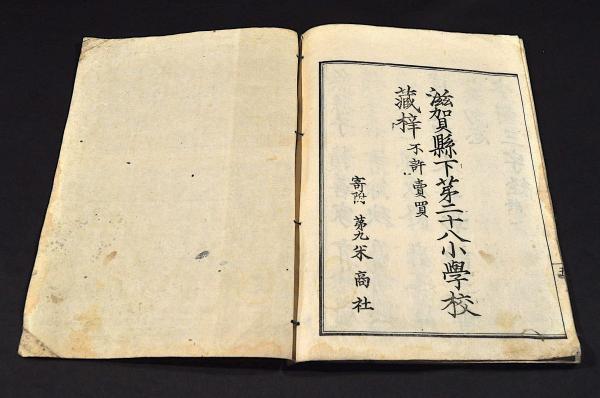 滋賀縣下第二十八小學校
藏梓不許賣買
寄附 第九米商社